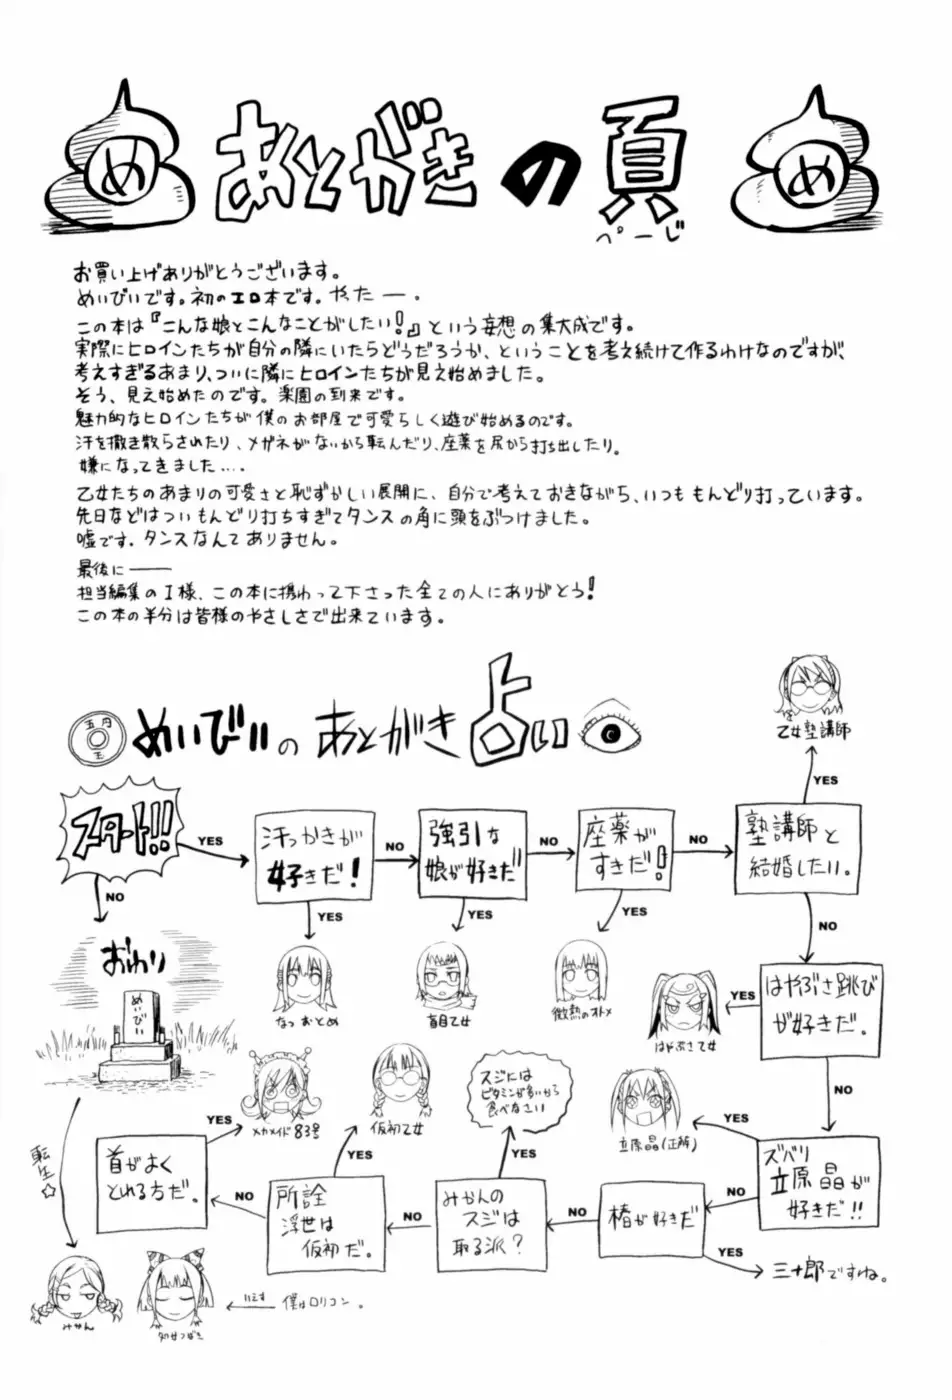 め
あとがきの頁
ぺーじ
め
お買い上げありがとうございます。
めいびいです。初のエロ本です。やったー。
この本は『こんな娘とこんなことがしたい!』という妄想の集大成です。
実際にヒロインたちが自分の隣にいたらどうだろうか、ということを考え続けて作るわけなのですが、
考えすぎるあまり、ついに隣にヒロインたちが見え始めました。
そう、見え始めたのです。楽園の到来です。
魅力的なヒロインたちが僕のお部屋で可愛らしく遊び始めるのです。
汗を撒き散らされたり、メガネがないから転んだり、座薬を尻から打ち出したり。
嫌になってきました....
乙女たちのあまりの可愛さと恥ずかしい展開に、自分で考えておきながら、いつももんどり打っています。
先日などはついもんどり打ちすぎてタンスの角に頭をぶつけました。
嘘です。タンスなんてありません。
最後に――
担当編集のI様、この本に携わって下さった全ての人にありがとう!
この本の半分は皆様のやさしさで出来ています。
五円
玉
めいびいのあとがき占い
乙女塾講師
YES
スタート!!
YES
汗っかきが
好きだ!
NO
強引な
娘が好きだ
NO
座薬が
すきだ!
NO
塾講師と
結婚したい。
NO
YES
YES
YES
NO
おわり
めいびい
なつおとめ
盲目乙女
微熱のオトメ
はやぶさ乙女
YES
はやぶさ跳び
が好きだ。
NO
メカメイド83号
仮初乙女
スジには
ビタミンが多いから
食べなさい
立原晶(正解)
YES
ズバリ
立原晶が
好きだ!!
NO
椿が好きだ
YES
三十郎ですね。
NO
みかんの
スジは
取る派?
YES
NO
所詮
浮世は
仮初だ。
YES
NO
首がよく
とれる方だ。
YES
転生☆
みかん
幼女つばき
いえす
僕はロリコン。